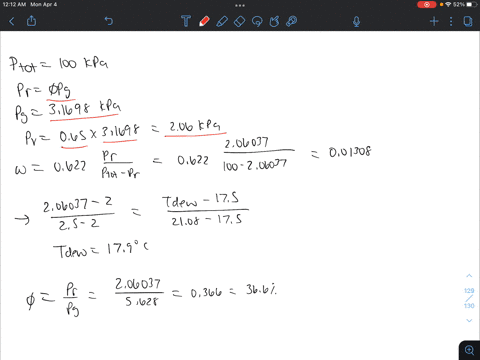 12:12 AM Mon Apr 4
52%
Ptot = 100 kPa
Pr = φPg
Pg = 3.1698 kPa
Pv = 0.65 × 3.1698 = 2.06 kPa
w = 0.622 Pr / Ptot - Pr = 0.622 2.06037 / 100 - 2.06037 = 0.01308
→ 2.06037 - 2 / 2.5 - 2 = Tdew - 17.5 / 21.08 - 17.5
Tdew = 17.9°C
φ = Pr / Pg = 2.06037 / 5.628 = 0.366 = 36.6%
129
130